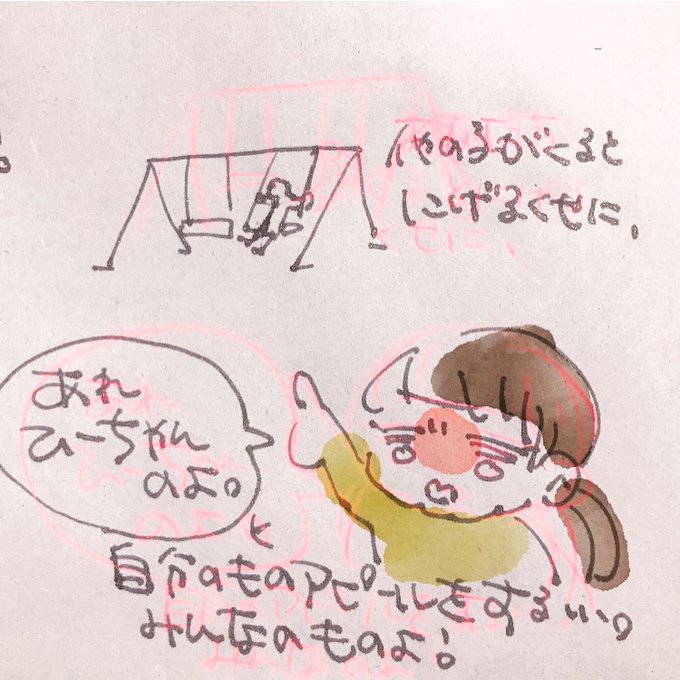 他の子がくると
にげるくせに、
あれ
ひーちゃん
のよ。
と
自分のものアピールをする
みんなのものよ!